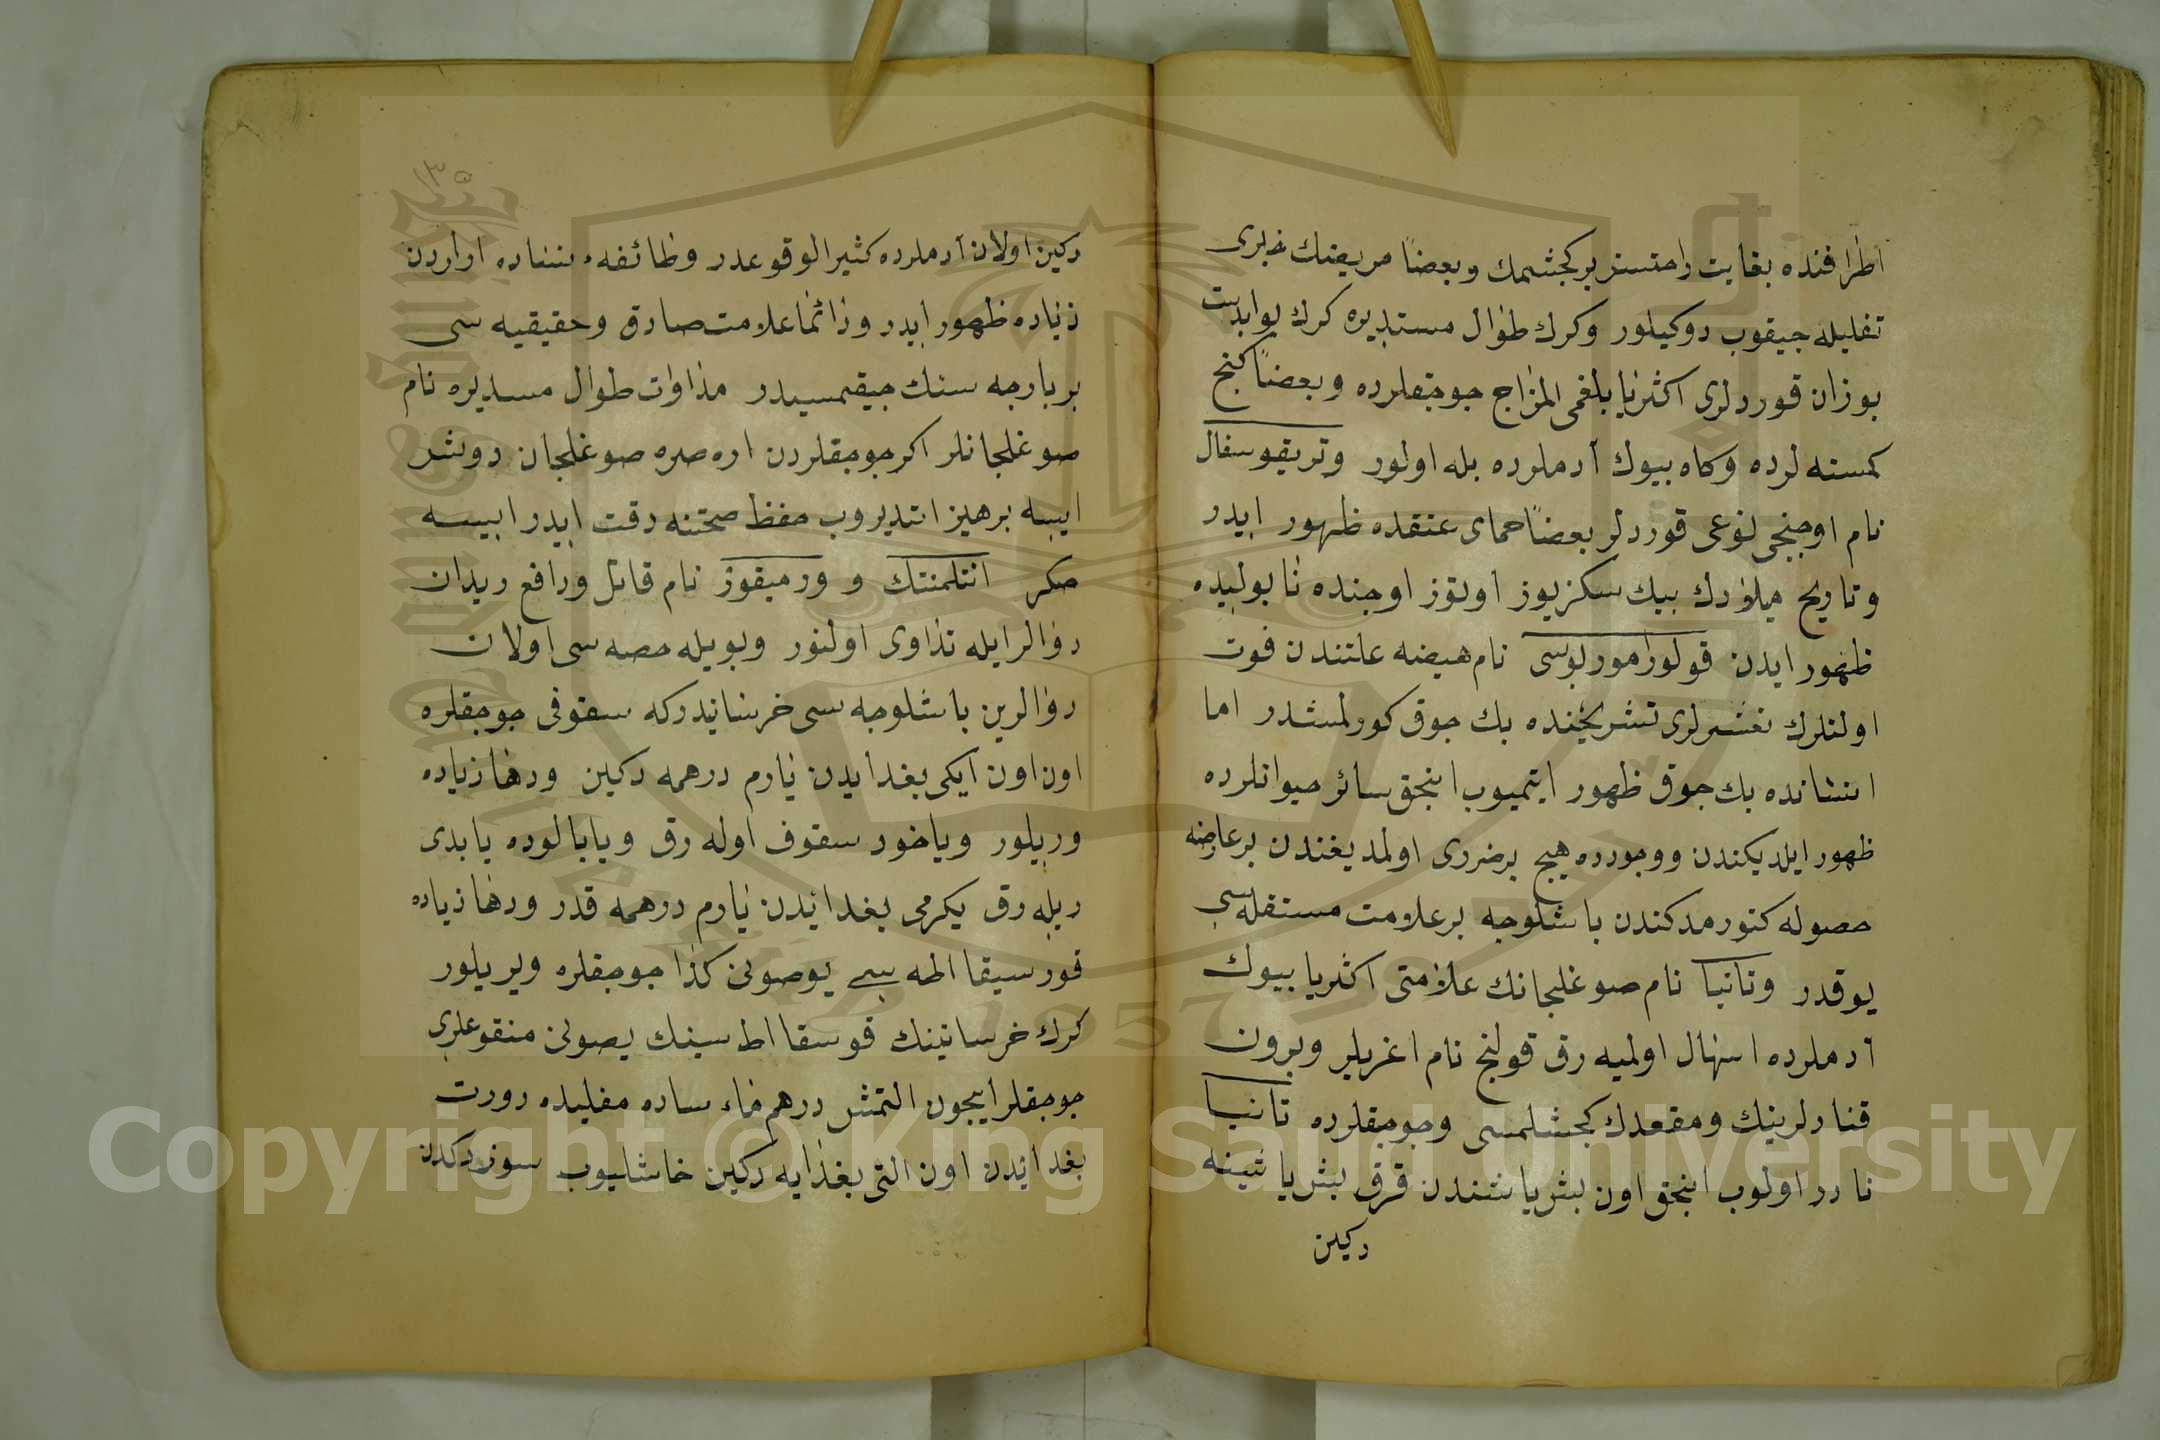 اطرافنده بغایت راحتسز بر کجشمك وبعضاً مریضك خبری
تفلیله جیقوب دوکیلور وکرك طوال مستدیره کرك بوابدیت
بوزان قوردلری اکثریا بلغمی المزاج جوجقلرده وبعضاً کنج
کمسنه لرده وکاه بیوك آدملرده بله اولور وتریقوسفال
نام اوجنجی نوعی قوردلر بعضاً حمای عنقده ظهور ایدر
وتاریخ میلادك بیك سکزیوز اوتوز اوجنده نابولیده
ظهور ایدن قولورامور بوسی نام هیضه علتندن فوت
اولنلرك نعشلری تشریحنده بك جوق کورلمشدر اما
انسانده بك جوق ظهور ایتمیوب انجق سائر حیوانلرده
ظهور ایلدیکندن ووجودده هیج بر ضرری اولمدیغندن بر عارضه
حصوله کتورمدکندن باشلوجه بر علامت مستقله سی
یوقدر وتانیا نام صوغلجانك علامتی اکثریا بیوك
آدملرده اسهال اولمیه رق قولنج نام اغریلر وبرون
قنادلرینك ومقعدك کجشلمسی وجوجقلرده تانیا
نادر اولوب انجق اون بش یاشندن قرق بش یاشینه
دکین
١٣٥
دکین اولان آدملرده کثیر الوقوعدر وطائفهء نساده اولردن
زیاده ظهور ایدر ودائما علامت صادق وحقیقیه سی
بر بارجه سنك جیقمسیدر مداوات طوال مسدیره نام
صوغلجانلر اکر جوجقلردن اره صره صوغلجان دوشر
ایسه برهیز اتدیروب حفظ صحتنه دقت ایدر ایسه
صکر انتلمنتك و ورمیقوز نام قاتل ورافع دیدان
دوالر ایله تداوی اولنور وبویله حصه سی اولان
دوالرین باشلوجه سی خرسانیدرکه سفوفی جوجقلره
اون اون ایکی بغدایدن یارم درهمه دکین ودها زیاده
وریلور ویاخود سفوف اوله رق ویابالوده یابدی
ریله رق یکرمی بغدائدن یارم درهمه قدر ودها زیاده
قورسیقا اطه سی یوصونی کذا جوجقلره ویریلور
کرك خرسانینك قوسقا اطه سینك یصونی منقوعلری
جوجقلر ایجون التمش درهم ماء ساده مغلیده دورت
بغدائدن اون التی بغدایه دکین خاشلیوب سوزدکدن
Copyright © King Saud University
1957